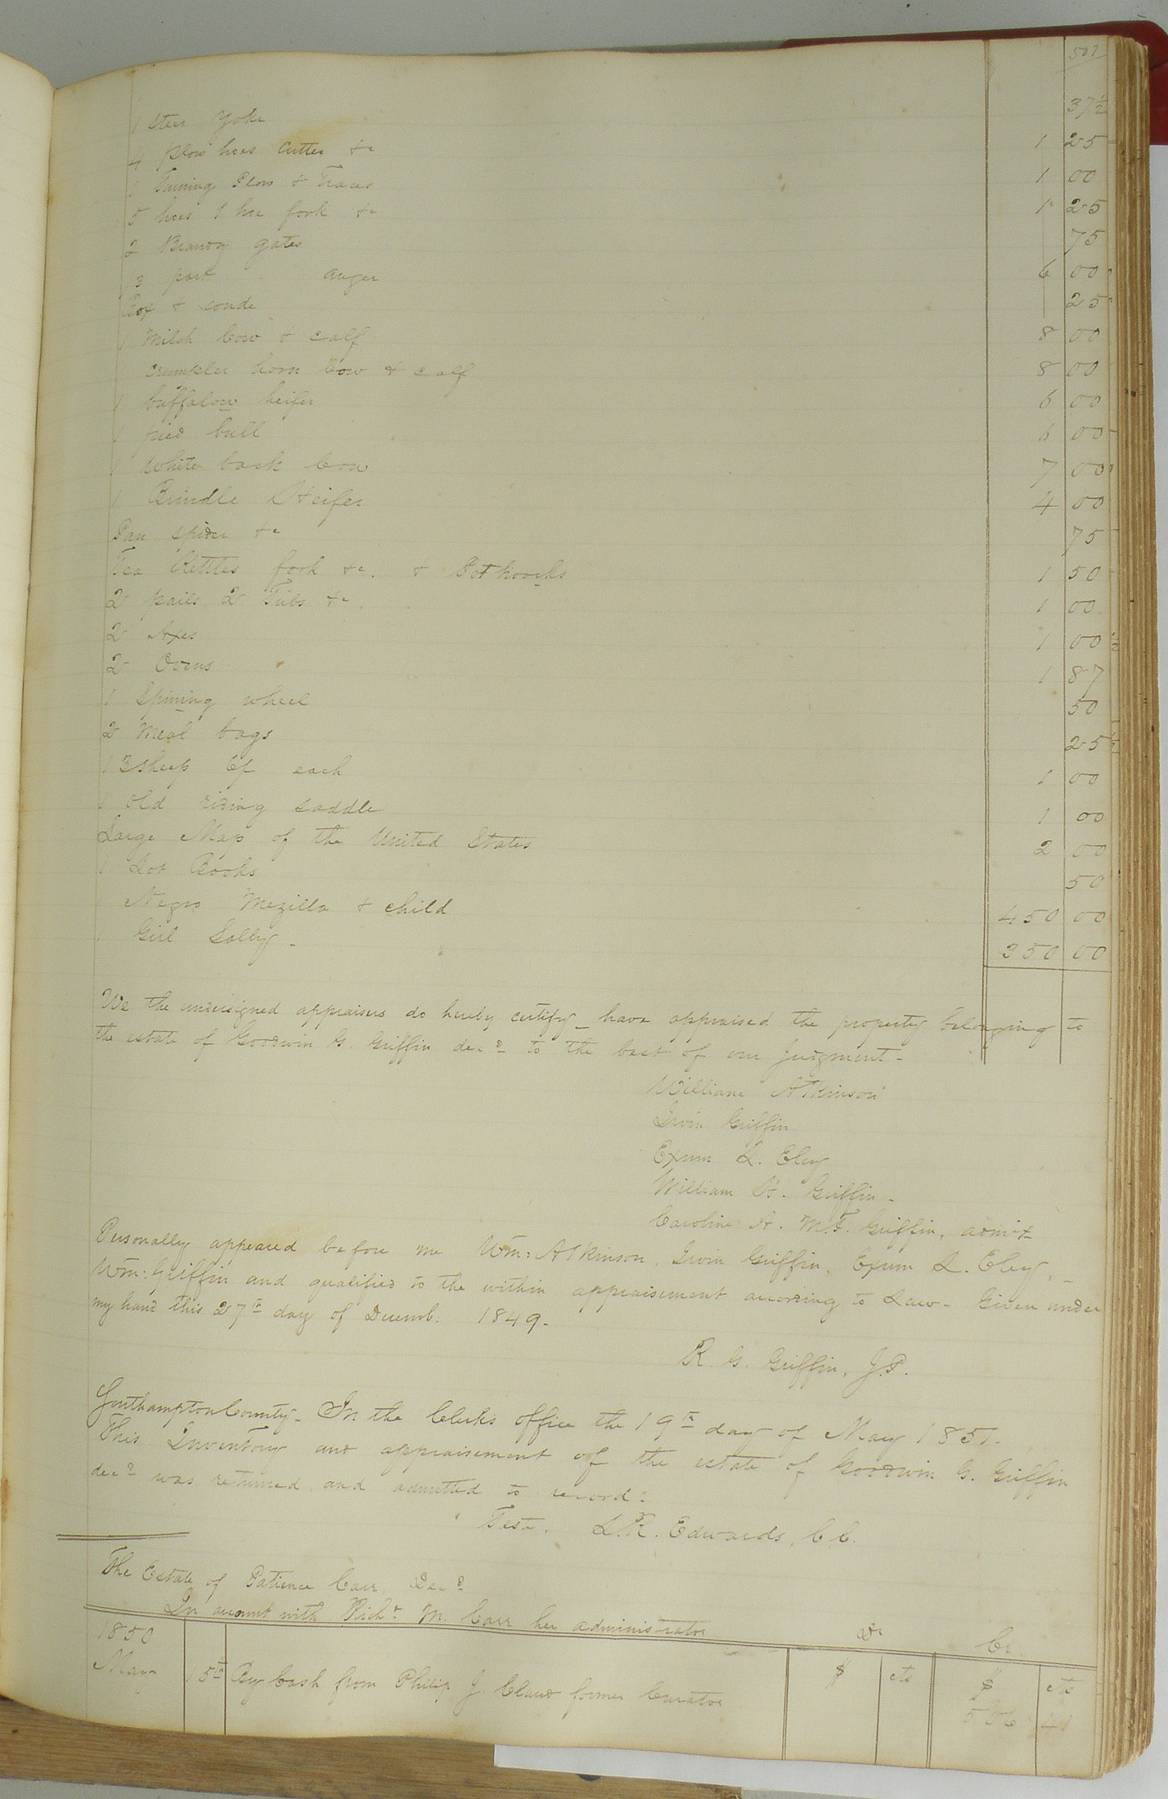 507
1 Steer Yoke 37½
4 plow hoes Cutter &c 1 25
1 Turning Plow & Traces 1 00
5 hoes 1 hoe fork &c 1 25
2 Brandy gates 75
3 part auger 6 00
Box & 25
1 Milch Cow & calf 8 00
crumpler horn Cow & calf 8 00
1 buffalow heifer 6 00
1 pied bull 6 00
1 White back Cow 7 00
1 Brindle Heifer 4 00
Pan spider &c 75
Tea Kettles fork &c. & Pot hoocks 1 50
2 pails 2 Tubs &c. 1 00
2 Axes 1 00
2 Ovens 1 87½
1 Spining wheel 50
2 Meal bags 25
13 sheep each 1 00
1 old riding saddle 1 00
Large Map of the United States 2 00
1 Lot Books 50
1 Negro Mezilla & child 450 00
1 Girl Sally - 350 00
We the undersigned appraisers do hereby certify - have appraised the property belonging to
the estate of Goodwin G. Griffin decd to the best of our judgment -
William Atkinson
Irvin Griffin
Exum L. Eley
William H. Griffin -
Caroline A. M. F. Griffin, admx
Personally appeared before me Wm: Atkinson, Irvin Griffin, Exum L. Eley, -
Wm: Griffin and qualified to the within appraisement according to Law - Given under
my hand this 27th day of Decemb: 1849 -
R. G. Griffin, J.P.
Southampton County - In the Clerks office the 19th day of May 1851.
This Inventory and appraisement of the estate of Goodwin G. Griffin
decd was returned and admitted to record:
Teste. L. R. Edwards, C C.
The Estate of Patience Carr Decd
In account with Richd M. Carr her administrator Dr Cr.
1850 $ cts $ cts
May 15th By Cash from Philip J. Claud former Curator 506 41